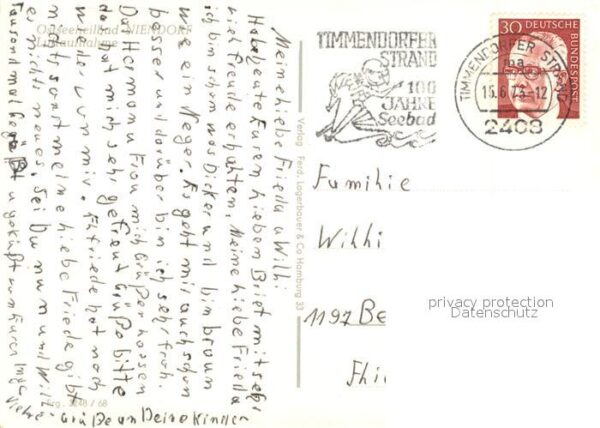 Ostseeheilbad NIENDORF
Luftaufnahme
Meine liebe Frieda u Willi
Habe heute Euren lieben Brief mit sehr
viel Freude erhalten. Meine liebe Frieda
ich bin schon was Dicker und bin braun
wie ein Neger. Es geht mir auch schon
besser und darüber bin ich sehr froh.
Das Hermann Frau mich Grüßen lassen
da hat mich sehr gefreut Grüße bitte
wieder von mir. Elfriede hat noch
nicht sonst meine liebe Frieda gibt
es nichts neues. Sei Du nun und Willi
Tausendmal Gegrüßt u geküßt von Eurer Inge
Grüße an Deine Kinder
Verlag Ferd. Lagerbauer & Co Hamburg 33
TIMMENDORFER
STRAND
100
JAHRE
Seebad
TIMMENDORFER STRAND
ma
15.6.73-12
2408
30 DEUTSCHE
BUNDESPOST
Familie
Willi
1197 Be
privacy protection
Datenschutz